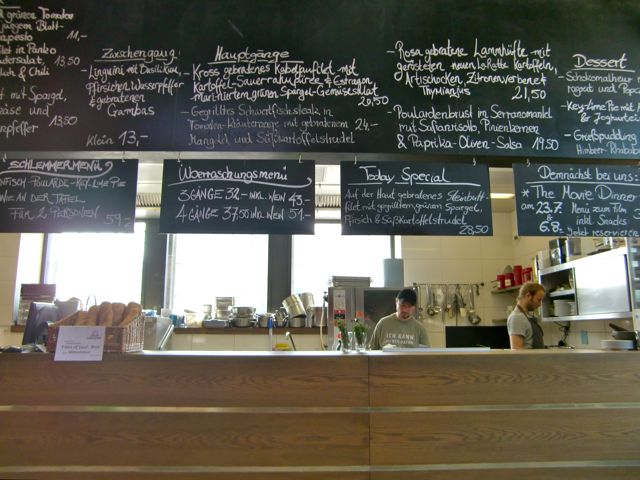 grünen Tomaten
jungem Blatt-
apesto 11,-
ilet in Panko
dersalat, 13,50
ch & Chili
mit Spargel,
äse und
pfeffer 13,50
Zwischengang
- Linguini mit Basilikum,
pfirsichen, Wasserpfeffer
& gebratenen
Gambas
Klein 13,-
Hauptgänge
- Kross gebratenes Kabeljaufilet mit
Kartoffel-Sauerrahmpüree & Estragon
marinierten grünen Spargel-Gemüsesalat
20,50
- Gegrilltes Schwertfischsteak in
Tomaten-Kräuterjus mit gebratenem 24,-
Mangold und Süßkartoffelstrudel
- Rosa gebratene Lammhüfte mit
gerösteten neuen La Rotte Kartoffeln,
Artischocken, Zitronenverbene &
Thymianjus 21,50
- Poulardenbrust im Serranomantel
mit Safranrisotto, Pinienkernen
& Paprika-Oliven-Salsa 19,50
Dessert
- Schokomalheur
ragout und Popco
- Key-Lime Pie mit
& Joghurteis
- Grießpudding
Himbeer-Rhabarb
SCHLEMMERMENÜ
FISCH-POULARDE-KEY LIME PIE
WIE AN DER TAFEL
FÜR 2 PERSONEN 59,-
Überraschungsmenü
3 GÄNGE 32,- INKL. WEIN 43,-
4 GÄNGE 37,50 INKL. WEIN 51,-
Today Special
Auf der Haut gebratenes Steinbutt-
filet mit gegrilltem grünen Spargel,
Pfirsich & Süßkartoffelstrudel
28,50
Demnächst bei uns:
* The Movie Dinner
am 23.7. Menü zum Film
& inkl. Snacks
6.8. Jetzt reservieren
ICH KANN